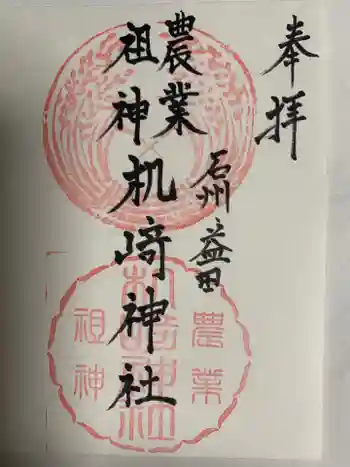 奉拝
石州益田
農業
祖神机崎神社
農業
机崎神社
祖神